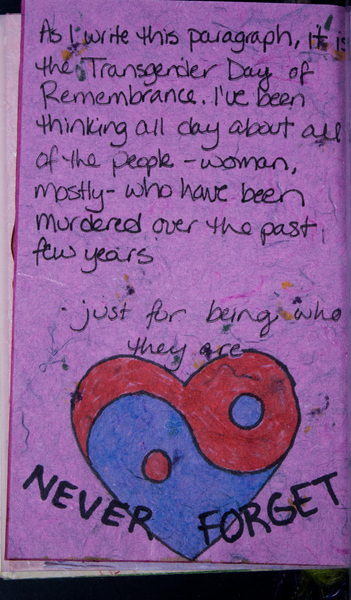 As I write this paragraph, it is
the Transgender Day of
Remembrance. I've been
thinking all day about all
of the people - woman,
mostly - who have been
murdered over the past
few years
just for being who
they are
NEVER FORGET